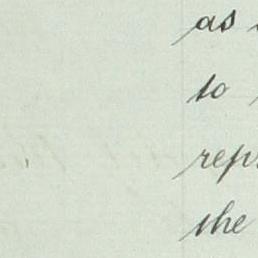 as
to
rep
the